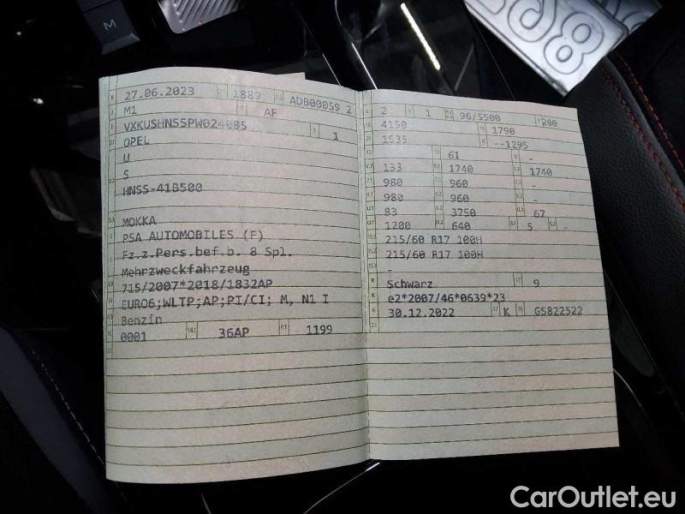 M
27.06.2023 1889 ADB00059 2
M1 AF
VXKUSHNSSPW024085 1
OPEL
U
S
HNSS-41B500
MOKKA
PSA AUTOMOBILES (F)
Fz.z.Pers.bef.b. 8 Spl.
Mehrzweckfahrzeug
715/2007*2018/1832AP
EURO6;WLTP;AP;PI/CI; M, N1 I
Benzin
0001 36AP 1199
2 1 96/5500 200
4150 1790
1535 --1295
61 -
133 1740 1740
980 960 -
980 960 -
83 3750 67
1200 640 5 -
215/60 R17 100H
215/60 R17 100H
-
Schwarz 9
e2*2007/46*0639*23
30.12.2022 K G5822522
CarOutlet.eu